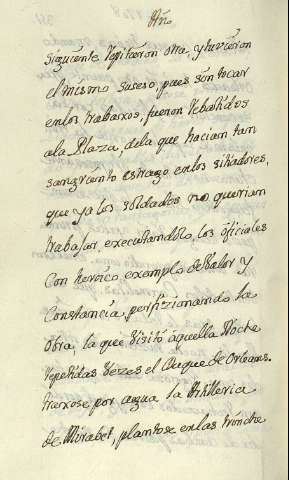 Año
siguiente repitieron otra, y tuvieron
el mismo suseso, pues sin tocar
en los trabaxos, fueron rebatidos
a la Plaza, de la que hacian tan
sangriento estrago en los sitiadores,
que ya los soldados no querian
trabajar, executandolo, los oficiales
con heroico exemplo de Valor y
Constancia, perfizionando la
obra, la que visitò aquella Noche
repetidas Vezes el Duque de Orleans.
traxose por agua la Artilleria
de Mirabet, plantose en las trinche